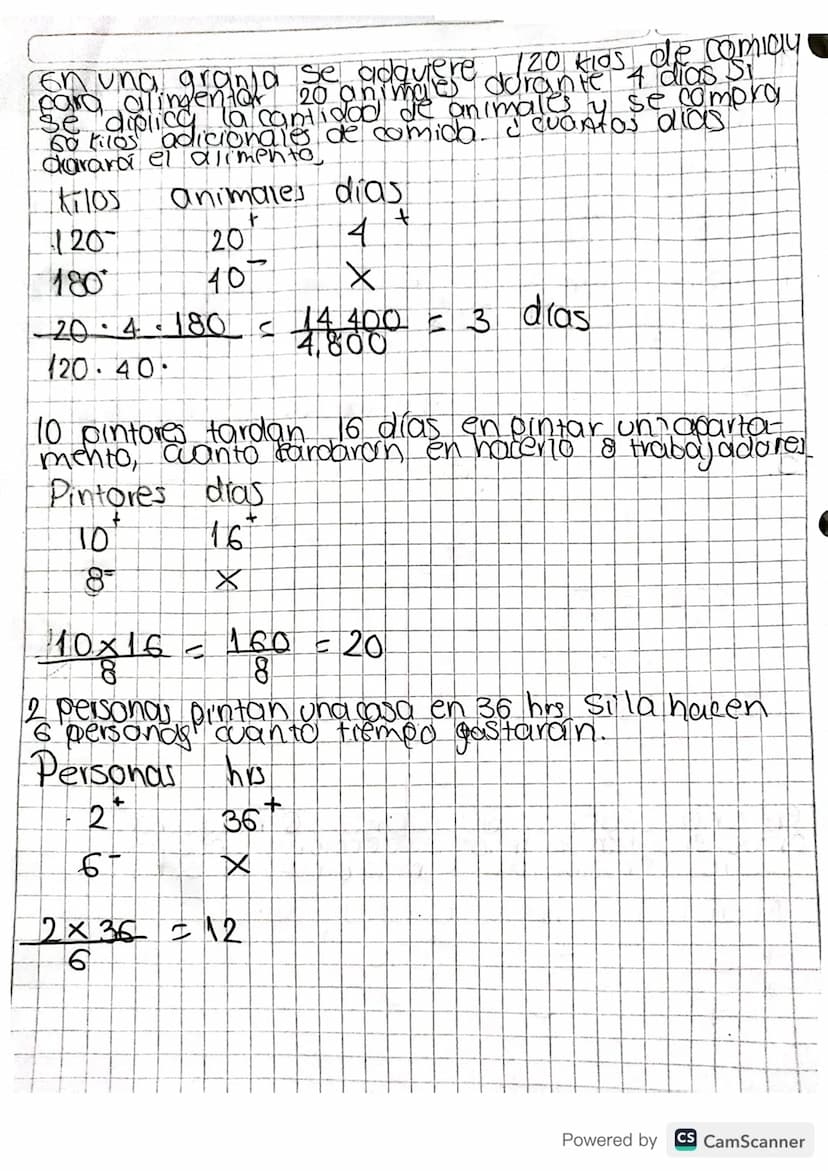 En una granja se adquiere 120 kios de comida
para alimentar 20 animales durante 4 días si
se duplica la cantidad de animales y se compra
60 kilos adicionales de comida. ¿cuantos dias
durará el alimento
kilos animales días
120⁻ 20⁺ 4⁺
180⁺ 40⁻ X
20 · 4 · 180 = 14 400 = 3 días
120 · 40 · 4,800
10 pintores tardan 16 días en pintar un aparta-
mento, cuanto tardaron en hacerlo 8 trabajadores
Pintores días
10⁺ 16⁺
8⁼ X
10 x 16 = 160 = 20
8 8
2 personas pintan una casa en 36 hrs Si la hacen
6 personas cuanto tiempo gastarán.
Personas hrs
2⁺ 36⁺
6⁻ X
2 x 36 = 12
6
Powered by CS CamScanner